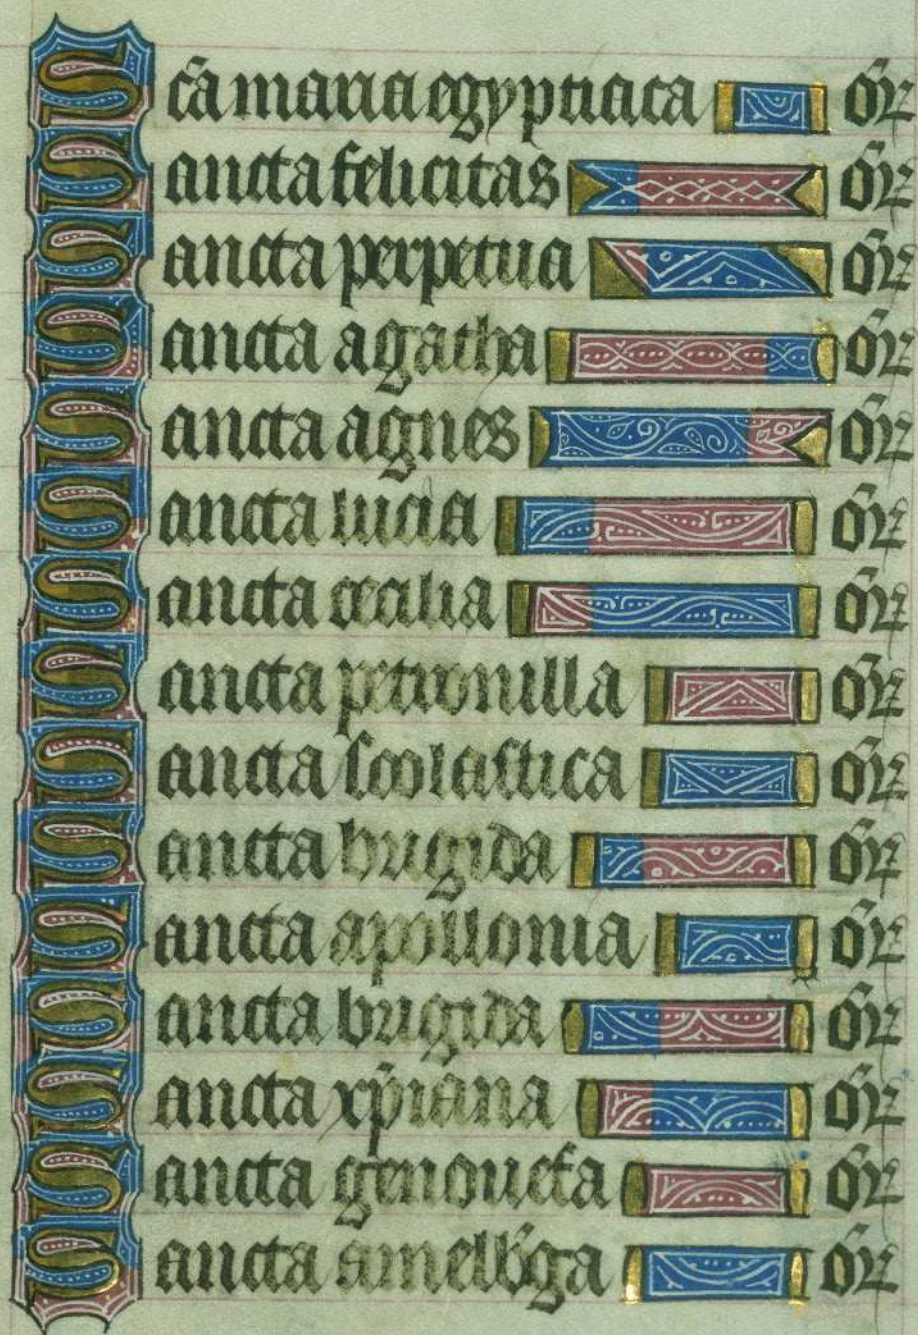 Sc̄a maria egyptiaca or̄
Sancta felicitas or̄
Sancta perpetua or̄
Sancta agatha or̄
Sancta agnes or̄
Sancta lucia or̄
Sancta cecilia or̄
Sancta petronilla or̄
Sancta scolastica or̄
Sancta brigida or̄
Sancta apollonia or̄
Sancta brigida or̄
Sancta xp̄iana or̄
Sancta genouefa or̄
Sancta amelb̄ga or̄